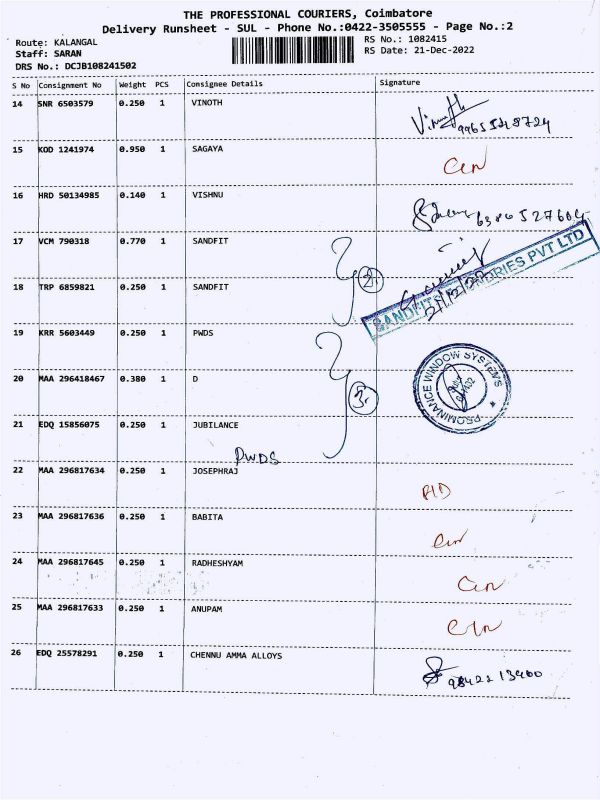 THE PROFESSIONAL COURIERS, Coimbatore
Delivery Runsheet - SUL - Phone No.:0422-3505555 - Page No.:2
Route: KALANGAL
Staff: SARAN
DRS No.: DCJB108241502
RS No.: 1082415
RS Date: 21-Dec-2022
S No Consignment No Weight PCS Consignee Details Signature
14 SNR 6503579 0.250 1 VINOTH
15 KOD 1241974 0.950 1 SAGAYA
16 HRD 50134985 0.140 1 VISHNU
17 VCM 790318 0.770 1 SANDFIT
2
SANDFITS FOUNDRIES PVT LTD
18 TRP 6859821 0.250 1 SANDFIT
19 KRR 5603449 0.250 1 PWDS
20 MAA 296418467 0.380 1 D
3
PROMINANCE WINDOW SYSTEMS
21 EDQ 15856075 0.250 1 JUBILANCE
PWDS
22 MAA 296817634 0.250 1 JOSEPHRAJ
23 MAA 296817636 0.250 1 BABITA
24 MAA 296817645 0.250 1 RADHESHYAM
25 MAA 296817633 0.250 1 ANUPAM
26 EDQ 25578291 0.250 1 CHENNU AMMA ALLOYS
9842213460